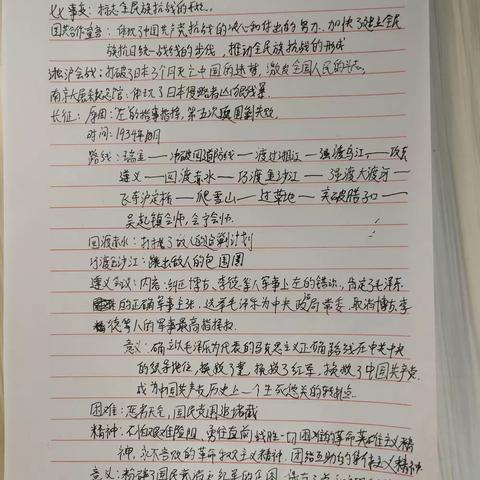 七七事变：标志全民族抗战的开始。
国共合作宣言：体现了中国共产党抗战的决心和作出的努力，加快了建立全民
族抗日统一战线的步伐，推动全民族抗战的形成
淞沪会战：打破了日本3个月灭亡中国的迷梦，激发全国人民的
南京大屠杀纪念馆：体现了日本侵略者凶狠残暴
长征：原因："左"的指挥，第五次反围剿失败
时间：1934年10月
路线：瑞金——冲破四道防线——渡过湘江——强渡乌江——攻克
遵义——四渡赤水——巧渡金沙江——强渡大渡河——
飞夺泸定桥——爬雪山——过草地——突破腊子口——
吴起镇会师，会宁会师
四渡赤水：打乱了敌人的追剿计划
巧渡金沙江：跳出敌人的包围圈
遵义会议：内容：纠正博古、李德等人军事上左的错误，肯定了毛泽东
的正确军事主张，选举毛泽东为中央政治局常委，取消博古、李
德等人的军事最高指挥权
意义：确立以毛泽东为代表的马克思主义正确路线在中共中央
的领导地位，挽救了党，挽救了红军，挽救了中国共产党
成为中国共产党历史上一个生死攸关的转折点
困难：恶劣天气，国民党围追堵截
精神：不怕艰难险阻，勇往直前战胜一切困难的革命英雄主义精
神，永不言败的革命乐观主义精神，团结互助的集体主义精神
意义：粉碎了国民党消灭红军的企图，